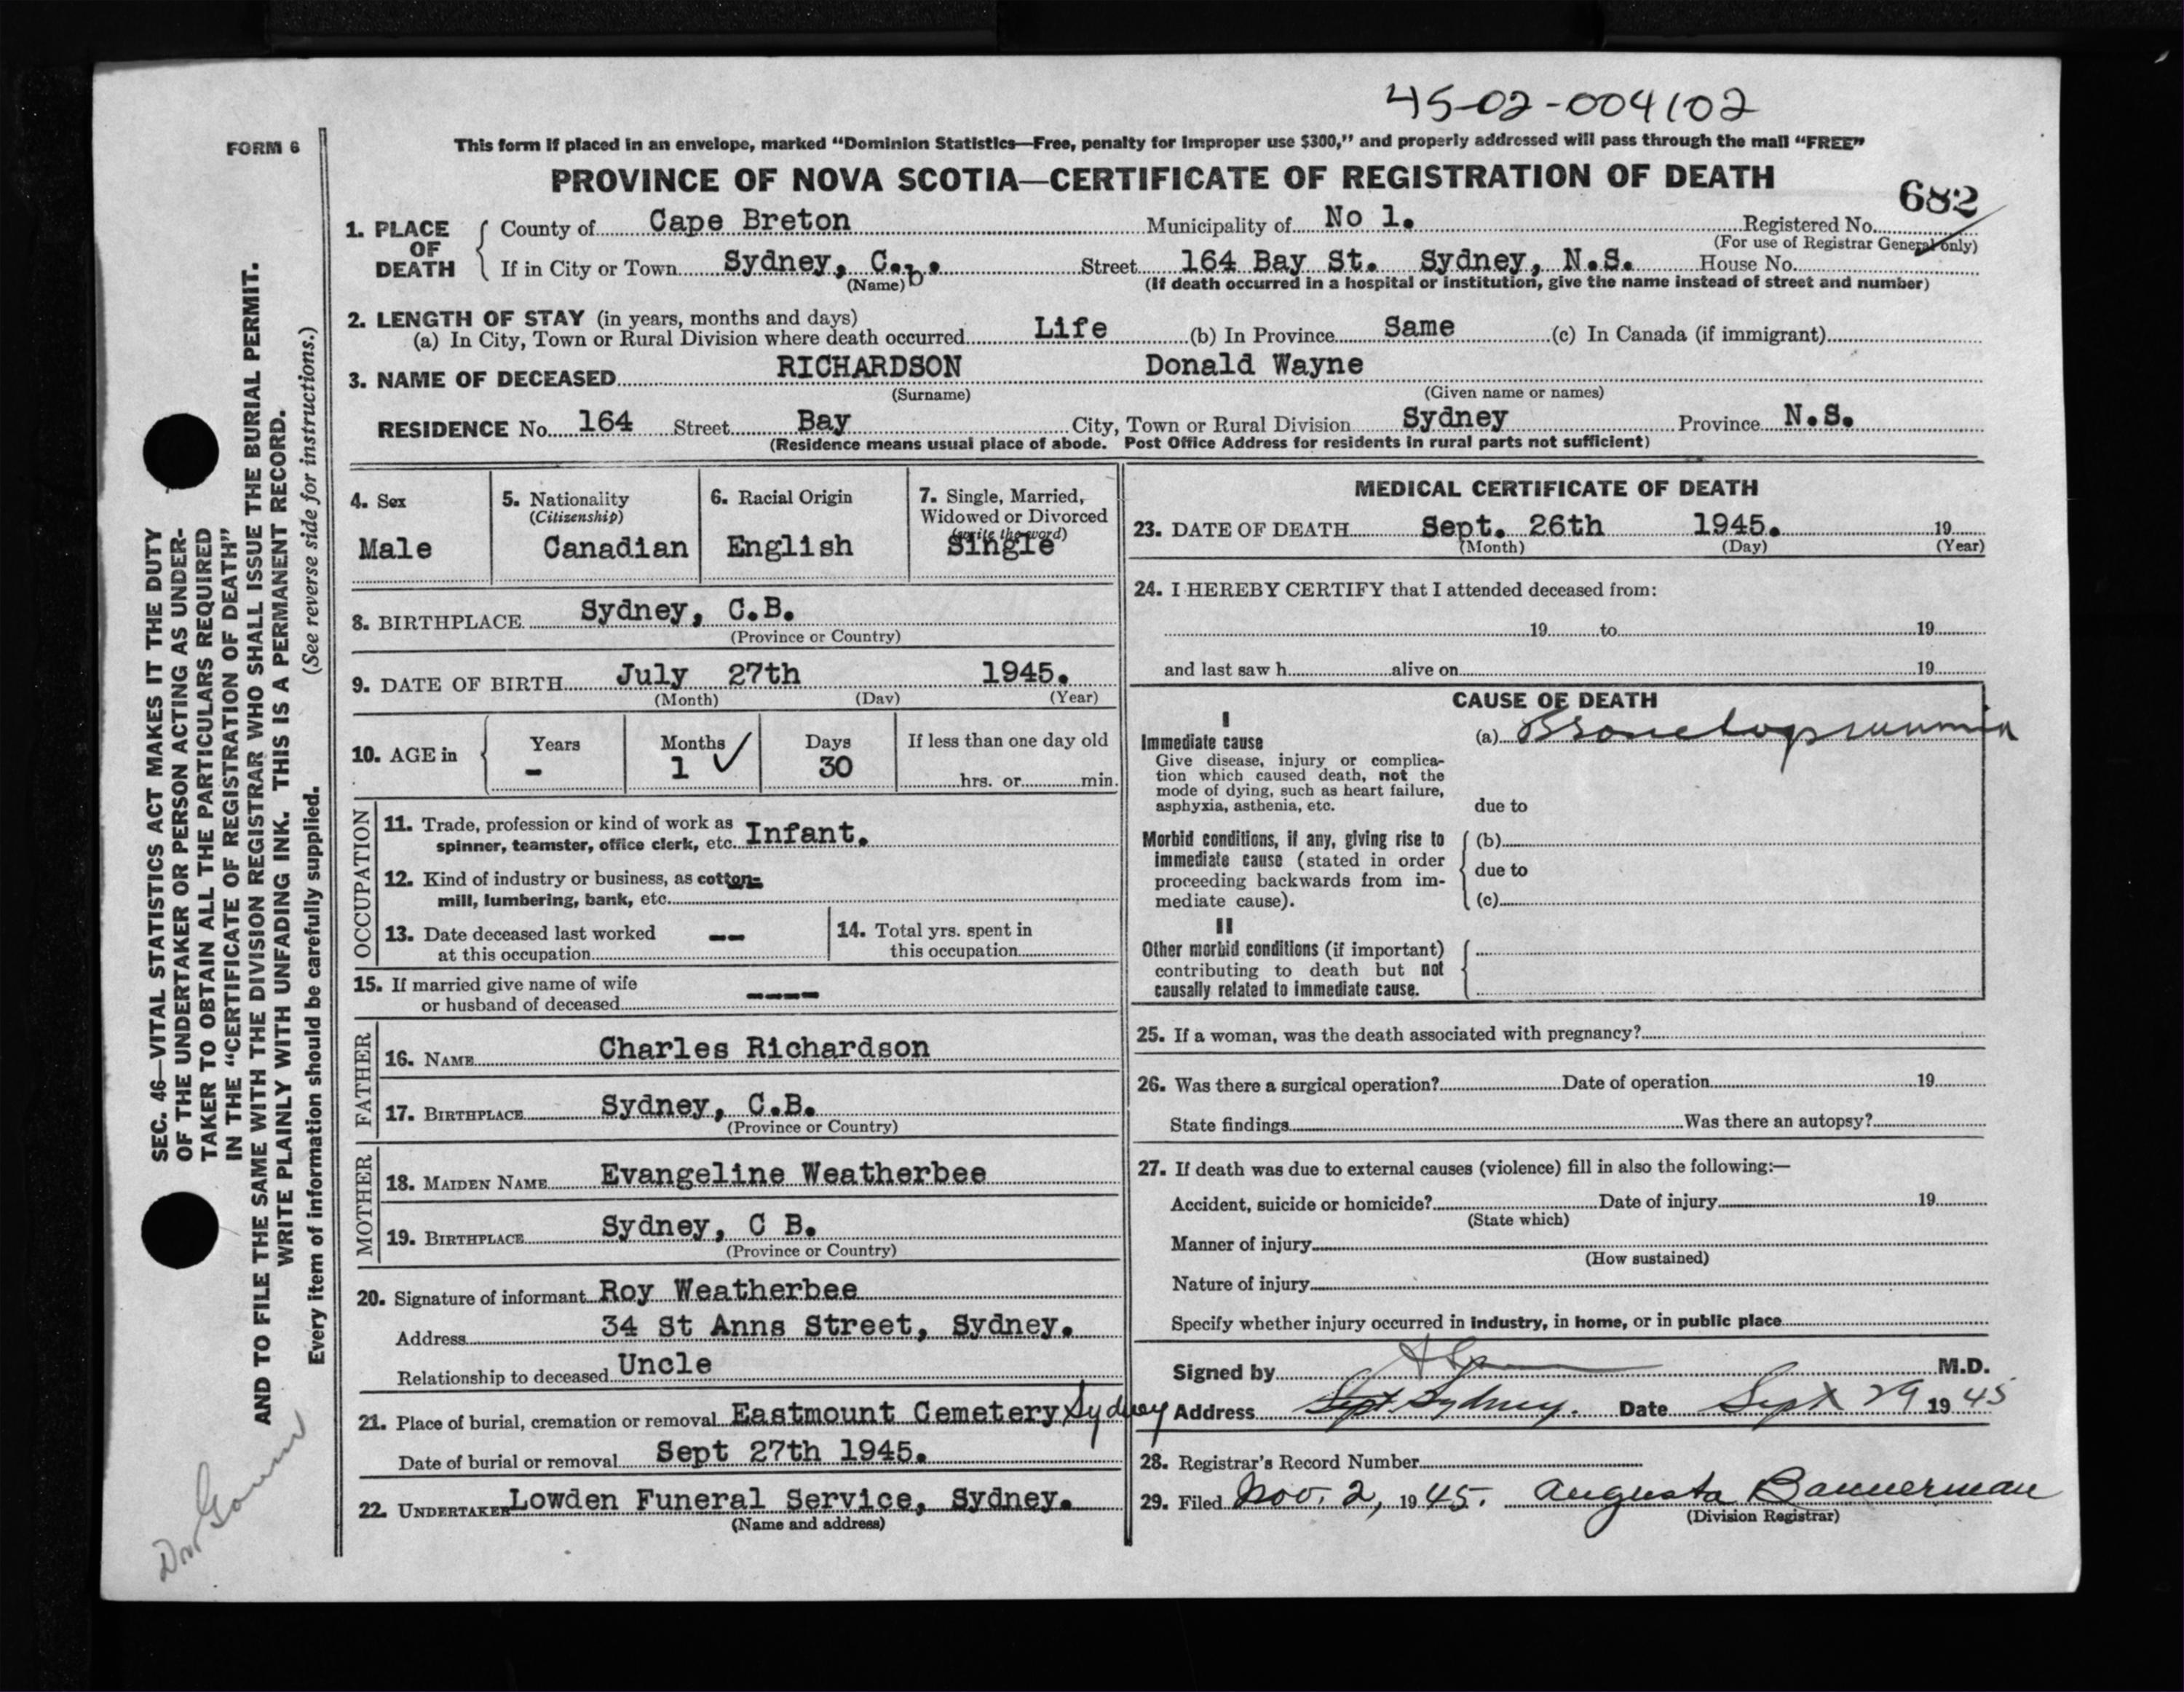 45-02-004102
FORM 6
This form if placed in an envelope, marked "Dominion Statistics—Free, penalty for improper use $300," and properly addressed will pass through the mail "FREE"
PROVINCE OF NOVA SCOTIA—CERTIFICATE OF REGISTRATION OF DEATH
682
1. PLACE OF DEATH County of Cape Breton Municipality of No 1. Registered No.
(For use of Registrar General only)
If in City or Town Sydney, C.b. Street 164 Bay St. Sydney, N.S. House No.
(Name) (If death occurred in a hospital or institution, give the name instead of street and number)
2. LENGTH OF STAY (in years, months and days)
(a) In City, Town or Rural Division where death occurred Life (b) In Province Same (c) In Canada (if immigrant)
3. NAME OF DECEASED RICHARDSON Donald Wayne
(Surname) (Given name or names)
RESIDENCE No. 164 Street Bay City, Town or Rural Division Sydney Province N.S.
(Residence means usual place of abode. Post Office Address for residents in rural parts not sufficient)
4. Sex
Male
5. Nationality
(Citizenship)
Canadian
6. Racial Origin
English
7. Single, Married,
Widowed or Divorced
(write the word)
Single
8. BIRTHPLACE Sydney, C.B.
(Province or Country)
9. DATE OF BIRTH July 27th 1945.
(Month) (Day) (Year)
10. AGE in Years Months Days If less than one day old
- 1 ✓ 30 hrs. or min.
OCCUPATION
11. Trade, profession or kind of work as
spinner, teamster, office clerk, etc. Infant.
12. Kind of industry or business, as cotton-
mill, lumbering, bank, etc.
13. Date deceased last worked --
at this occupation
14. Total yrs. spent in
this occupation
15. If married give name of wife
or husband of deceased ----
FATHER
16. NAME Charles Richardson
17. BIRTHPLACE Sydney, C.B.
(Province or Country)
MOTHER
18. MAIDEN NAME Evangeline Weatherbee
19. BIRTHPLACE Sydney, C B.
(Province or Country)
20. Signature of informant Roy Weatherbee
Address 34 St Anns Street, Sydney.
Relationship to deceased Uncle
21. Place of burial, cremation or removal Eastmount Cemetery Sydney
Date of burial or removal Sept 27th 1945.
22. UNDERTAKER Lowden Funeral Service, Sydney.
(Name and address)
MEDICAL CERTIFICATE OF DEATH
23. DATE OF DEATH Sept. 26th 1945. 19
(Month) (Day) (Year)
24. I HEREBY CERTIFY that I attended deceased from:
19 to 19
and last saw h alive on 19
CAUSE OF DEATH
I
Immediate cause (a) Bronchopneumonia
Give disease, injury or complica-
tion which caused death, not the
mode of dying, such as heart failure,
asphyxia, asthenia, etc. due to
Morbid conditions, if any, giving rise to (b)
immediate cause (stated in order
proceeding backwards from im- due to
mediate cause). (c)
II
Other morbid conditions (if important)
contributing to death but not
causally related to immediate cause.
25. If a woman, was the death associated with pregnancy?
26. Was there a surgical operation? Date of operation 19
State findings Was there an autopsy?
27. If death was due to external causes (violence) fill in also the following:—
Accident, suicide or homicide? Date of injury 19
(State which)
Manner of injury
(How sustained)
Nature of injury
Specify whether injury occurred in industry, in home, or in public place
Signed by M.D.
Address Sept. Sydney. Date Sept 29 1945
28. Registrar's Record Number
29. Filed Nov. 2, 1945. Augusta Bannerman
(Division Registrar)
SEC. 46—VITAL STATISTICS ACT MAKES IT THE DUTY
OF THE UNDERTAKER OR PERSON ACTING AS UNDER-
TAKER TO OBTAIN ALL THE PARTICULARS REQUIRED
IN THE "CERTIFICATE OF REGISTRATION OF DEATH"
AND TO FILE THE SAME WITH THE DIVISION REGISTRAR WHO SHALL ISSUE THE BURIAL PERMIT.
WRITE PLAINLY WITH UNFADING INK. THIS IS A PERMANENT RECORD.
Every item of information should be carefully supplied. (See reverse side for instructions.)
Dr